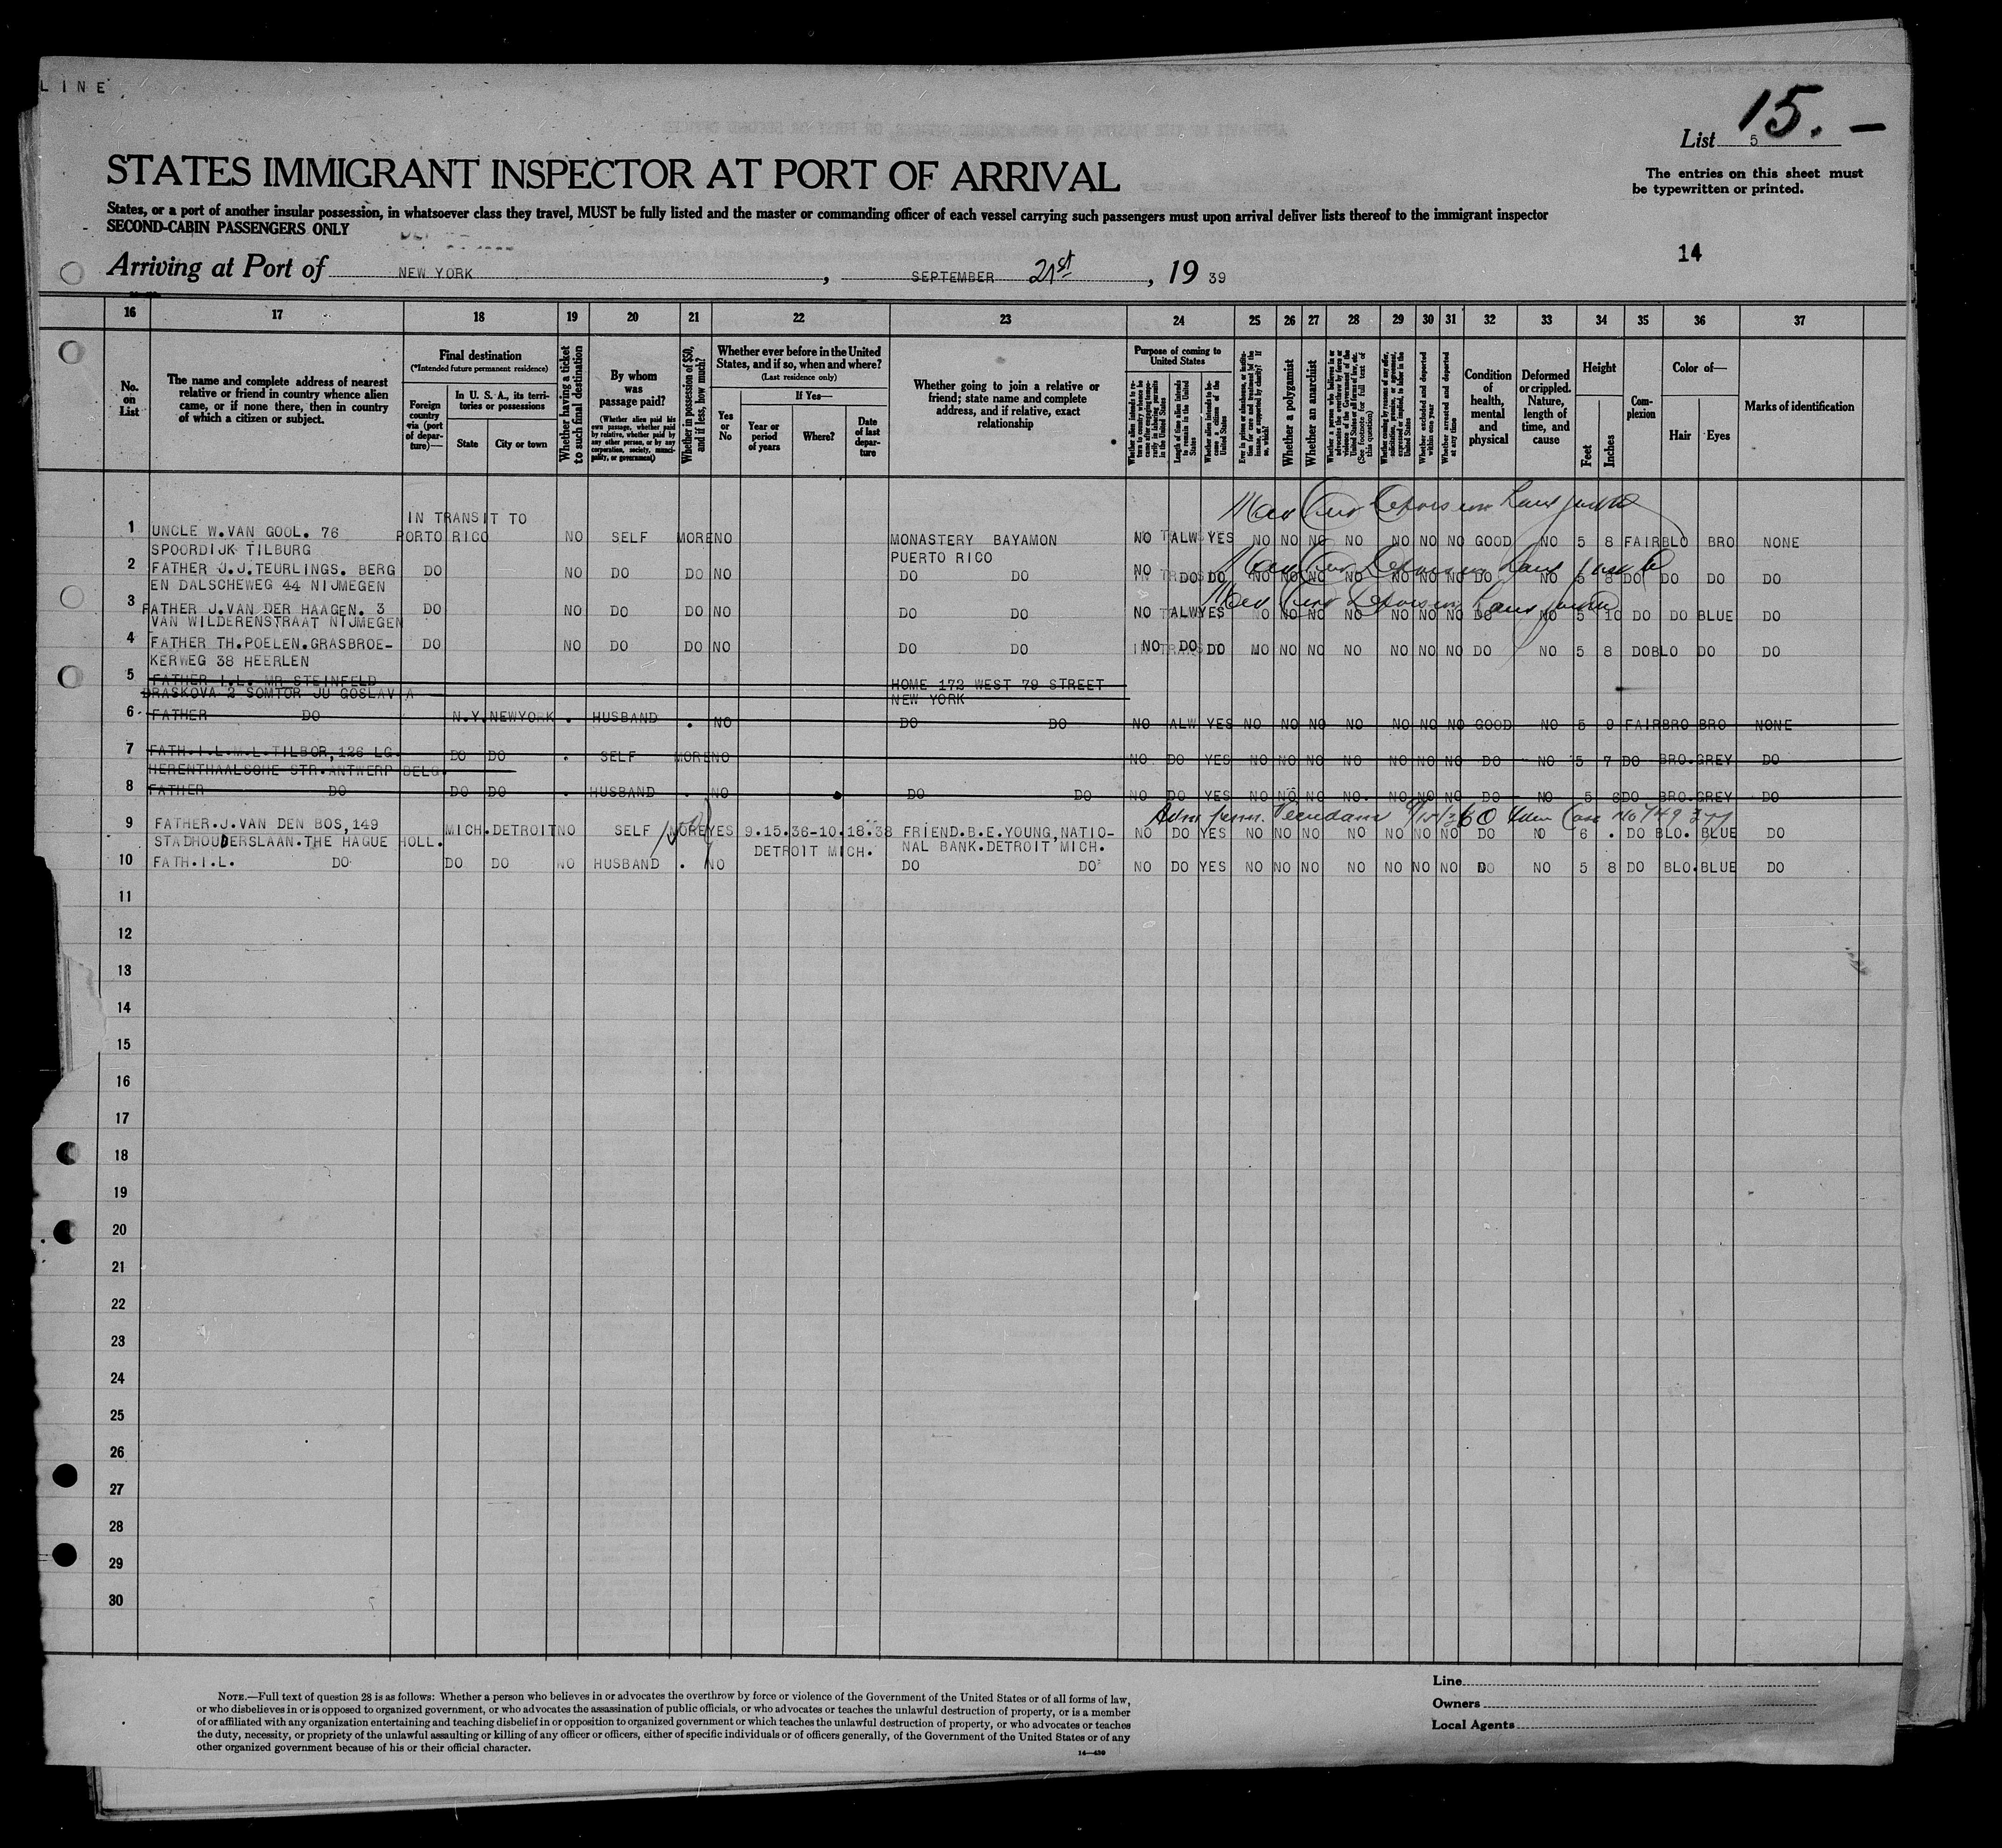 LINE
15. –
List 5
STATES IMMIGRANT INSPECTOR AT PORT OF ARRIVAL
The entries on this sheet must
be typewritten or printed.
States, or a port of another insular possession, in whatsoever class they travel, MUST be fully listed and the master or commanding officer of each vessel carrying such passengers must upon arrival deliver lists thereof to the immigrant inspector
SECOND-CABIN PASSENGERS ONLY
14
Arriving at Port of NEW YORK, SEPTEMBER 21st, 19 39
16 17 18 19 20 21 22 23 24 25 26 27 28 29 30 31 32 33 34 35 36 37
No. on List
The name and complete address of nearest relative or friend in country whence alien came, or if none there, then in country of which a citizen or subject.
Final destination
(*Intended future permanent residence)
Foreign country via (port of departure)—
In U. S. A., its territories or possessions
State
City or town
Whether having a ticket to such final destination
By whom was passage paid?
(Whether alien paid his own passage, whether paid by relative, whether paid by any other person, or by any corporation, society, municipality, or government)
Whether in possession of $50, and if less, how much?
Whether ever before in the United States, and if so, when and where?
(Last residence only)
Yes or No
If Yes—
Year or period of years
Where?
Date of last departure
Whether going to join a relative or friend; state name and complete address, and if relative, exact relationship
Purpose of coming to United States
Length of time alien intends to remain in the United States
Whether alien intends to become a citizen of the United States
Whether a polygamist
Whether an anarchist
(See footnote for full text of this question)
Whether excluded and deported within one year
Whether arrested and deported at any time
Condition of health, mental and physical
Deformed or crippled. Nature, length of time, and cause
Height
Feet
Inches
Complexion
Color of—
Hair
Eyes
Marks of identification
IN TRANSIT TO
1 UNCLE W.VAN GOOL. 76 PORTO RICO NO SELF MORE NO MONASTERY BAYAMON NO ALW YES NO NO NO NO NO NO NO GOOD NO 5 8 FAIR BLO BRO NONE
SPOORDIJK TILBURG PUERTO RICO
2 FATHER J.J.TEURLINGS. BERG DO NO DO DO NO DO DO NO DO DO NO NO NO NO NO NO NO DO NO 5 8 DO DO DO DO
EN DALSCHEWEG 44 NIJMEGEN
3 FATHER J.VAN DER HAAGEN. 3 DO NO DO DO NO DO DO NO ALW YES NO NO NO NO NO NO NO DO NO 5 10 DO DO BLUE DO
VAN WILDERENSTRAAT NIJMEGEN
4 FATHER TH.POELEN.GRASBROE- DO NO DO DO NO DO DO NO DO DO NO NO NO NO NO NO NO DO NO 5 8 DO BLO DO DO
KERWEG 38 HEERLEN
5 FATHER I.L. MR STEINFELD HOME 172 WEST 79 STREET
DRASKOVA 2 SOMTOR JU GOSLAVIA NEW YORK
6 FATHER DO N.Y. NEWYORK . HUSBAND . NO DO DO NO ALW YES NO NO NO NO NO NO NO GOOD NO 5 9 FAIR BRO BRO NONE
7 FATH.I.L.M.L.TILBOR,126 LG. DO DO . SELF MORE NO NO DO YES NO NO NO NO NO NO NO DO NO 5 7 DO BRO. GREY DO
HERENTHAALSCHE STR.ANTWERP BELG.
8 FATHER DO DO DO . HUSBAND . NO DO DO NO DO YES NO NO NO NO. NO NO NO DO NO 5 6 DO BRO. GREY DO
9 FATHER.J.VAN DEN BOS,149 MICH. DETROIT NO SELF MORE YES 9.15.36-10.18.38 FRIEND.B.E.YOUNG,NATIO- NO DO YES NO NO NO NO NO NO NO DO NO 6 . DO BLO. BLUE DO
STADHOUDERSLAAN.THE HAGUE HOLL. DETROIT MICH. NAL BANK.DETROIT MICH.
10 FATH.I.L. DO DO DO NO HUSBAND . NO DO DO NO DO YES NO NO NO NO NO NO NO DO NO 5 8 DO BLO. BLUE DO
11
12
13
14
15
16
17
18
19
20
21
22
23
24
25
26
27
28
29
30
NOTE.—Full text of question 28 is as follows: Whether a person who believes in or advocates the overthrow by force or violence of the Government of the United States or of all forms of law,
or who disbelieves in or is opposed to organized government, or who advocates the assassination of public officials, or who advocates or teaches the unlawful destruction of property, or is a member
of or affiliated with any organization entertaining and teaching disbelief in or opposition to organized government or which teaches the unlawful destruction of property, or who advocates or teaches
the duty, necessity, or propriety of the unlawful assaulting or killing of any officer or officers, either of specific individuals or of officers generally, of the Government of the United States or of any
other organized government because of his or their official character.
14—430
Line
Owners
Local Agents